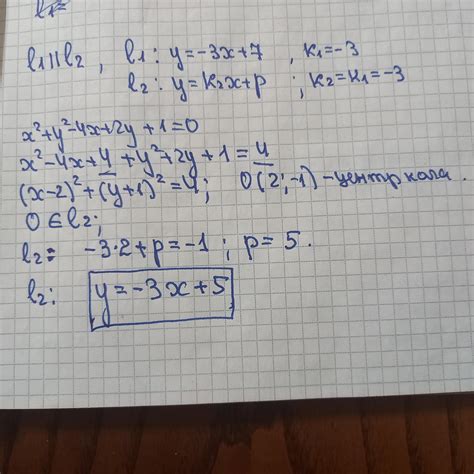 l₁=
l₁||l₂, l₁: y=-3x+7, k₁=-3
l₂: y=k₂x+p; k₂=k₁=-3
x²+y²-4x+2y+1=0
x²-4x+4+y²+2y+1=4
(x-2)²+(y+1)²=4; O(2;-1)-центр кола.
O∈l₂;
l₂: -3·2+p=-1; p=5.
l₂: y=-3x+5